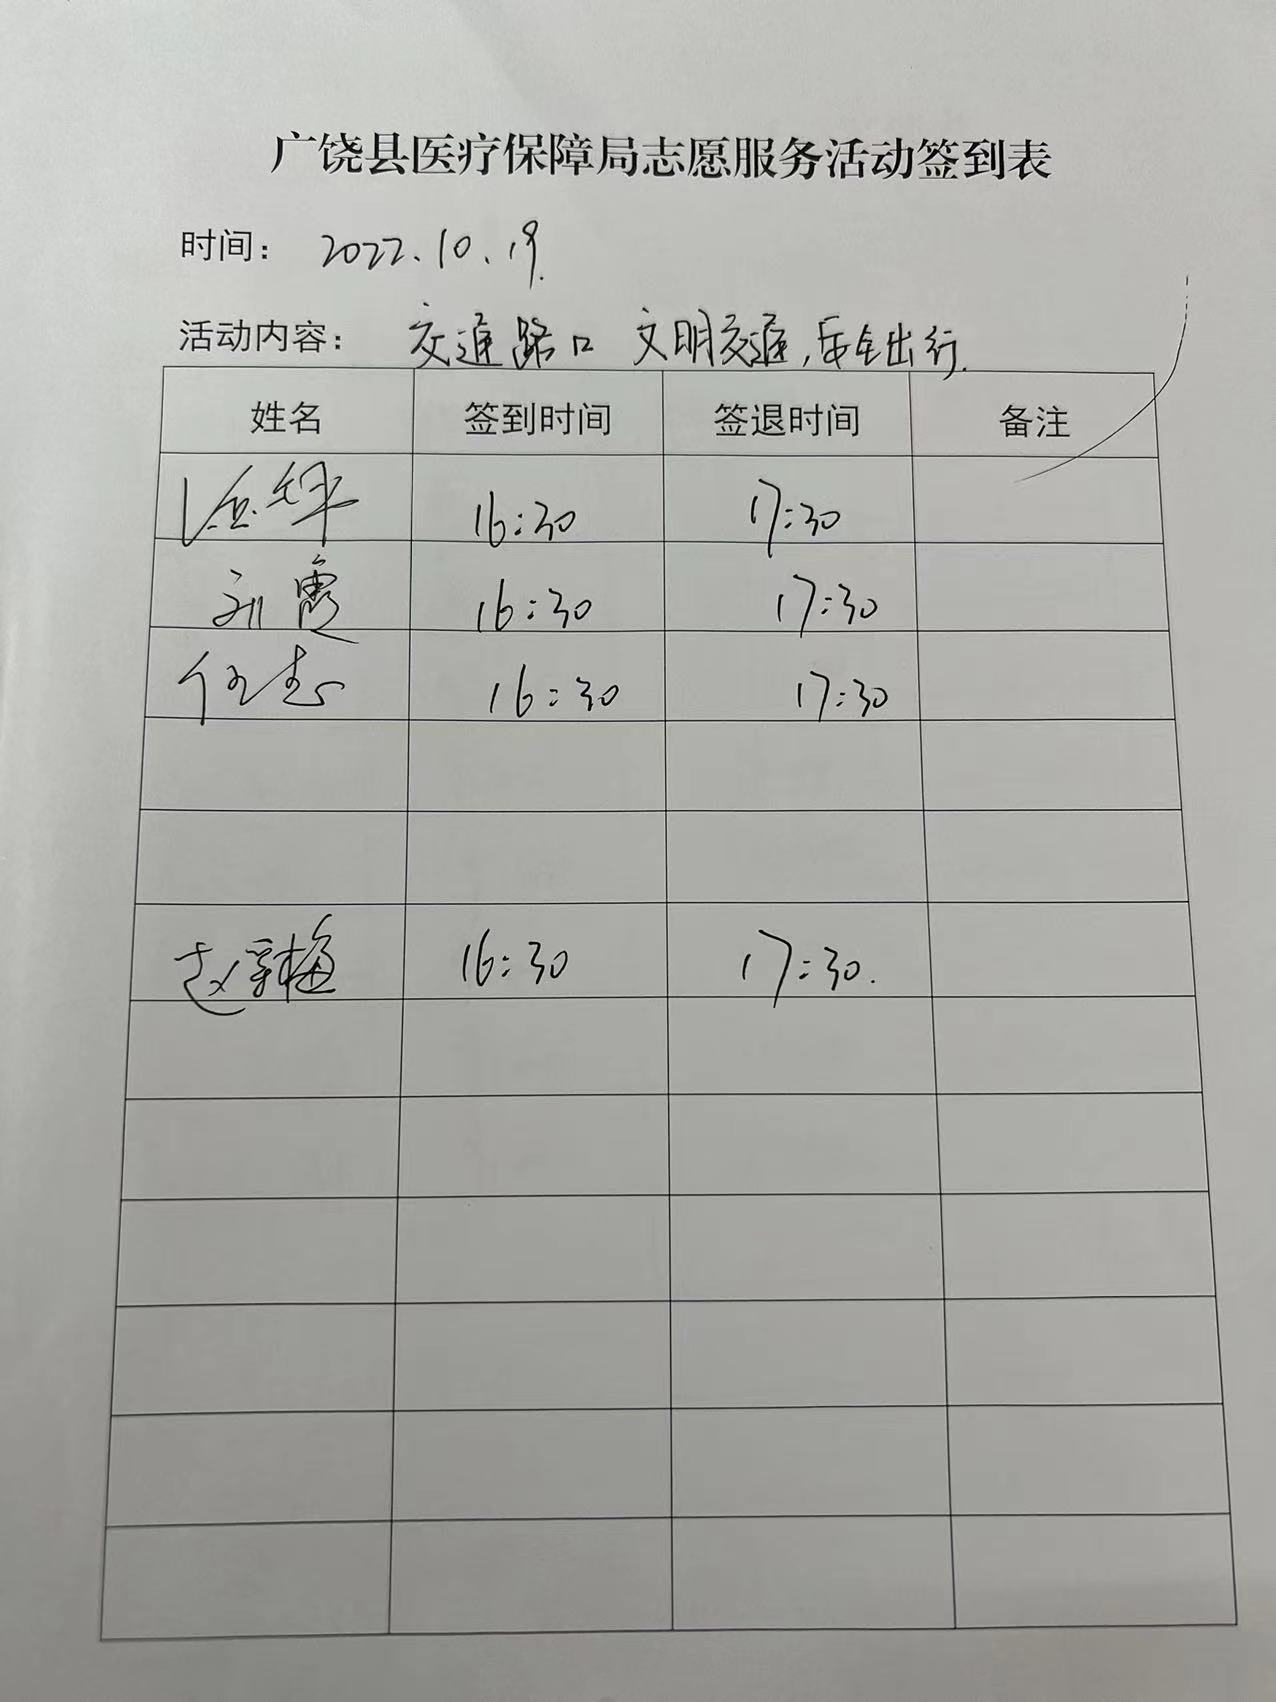 广饶县医疗保障局志愿服务活动签到表
时间： 2022.10.19.
活动内容： 交通路口 文明交通,安全出行.
姓名 签到时间 签退时间 备注
16:30 17:30
刘霞 16:30 17:30
任志 16:30 17:30
赵 梅 16:30 17:30.